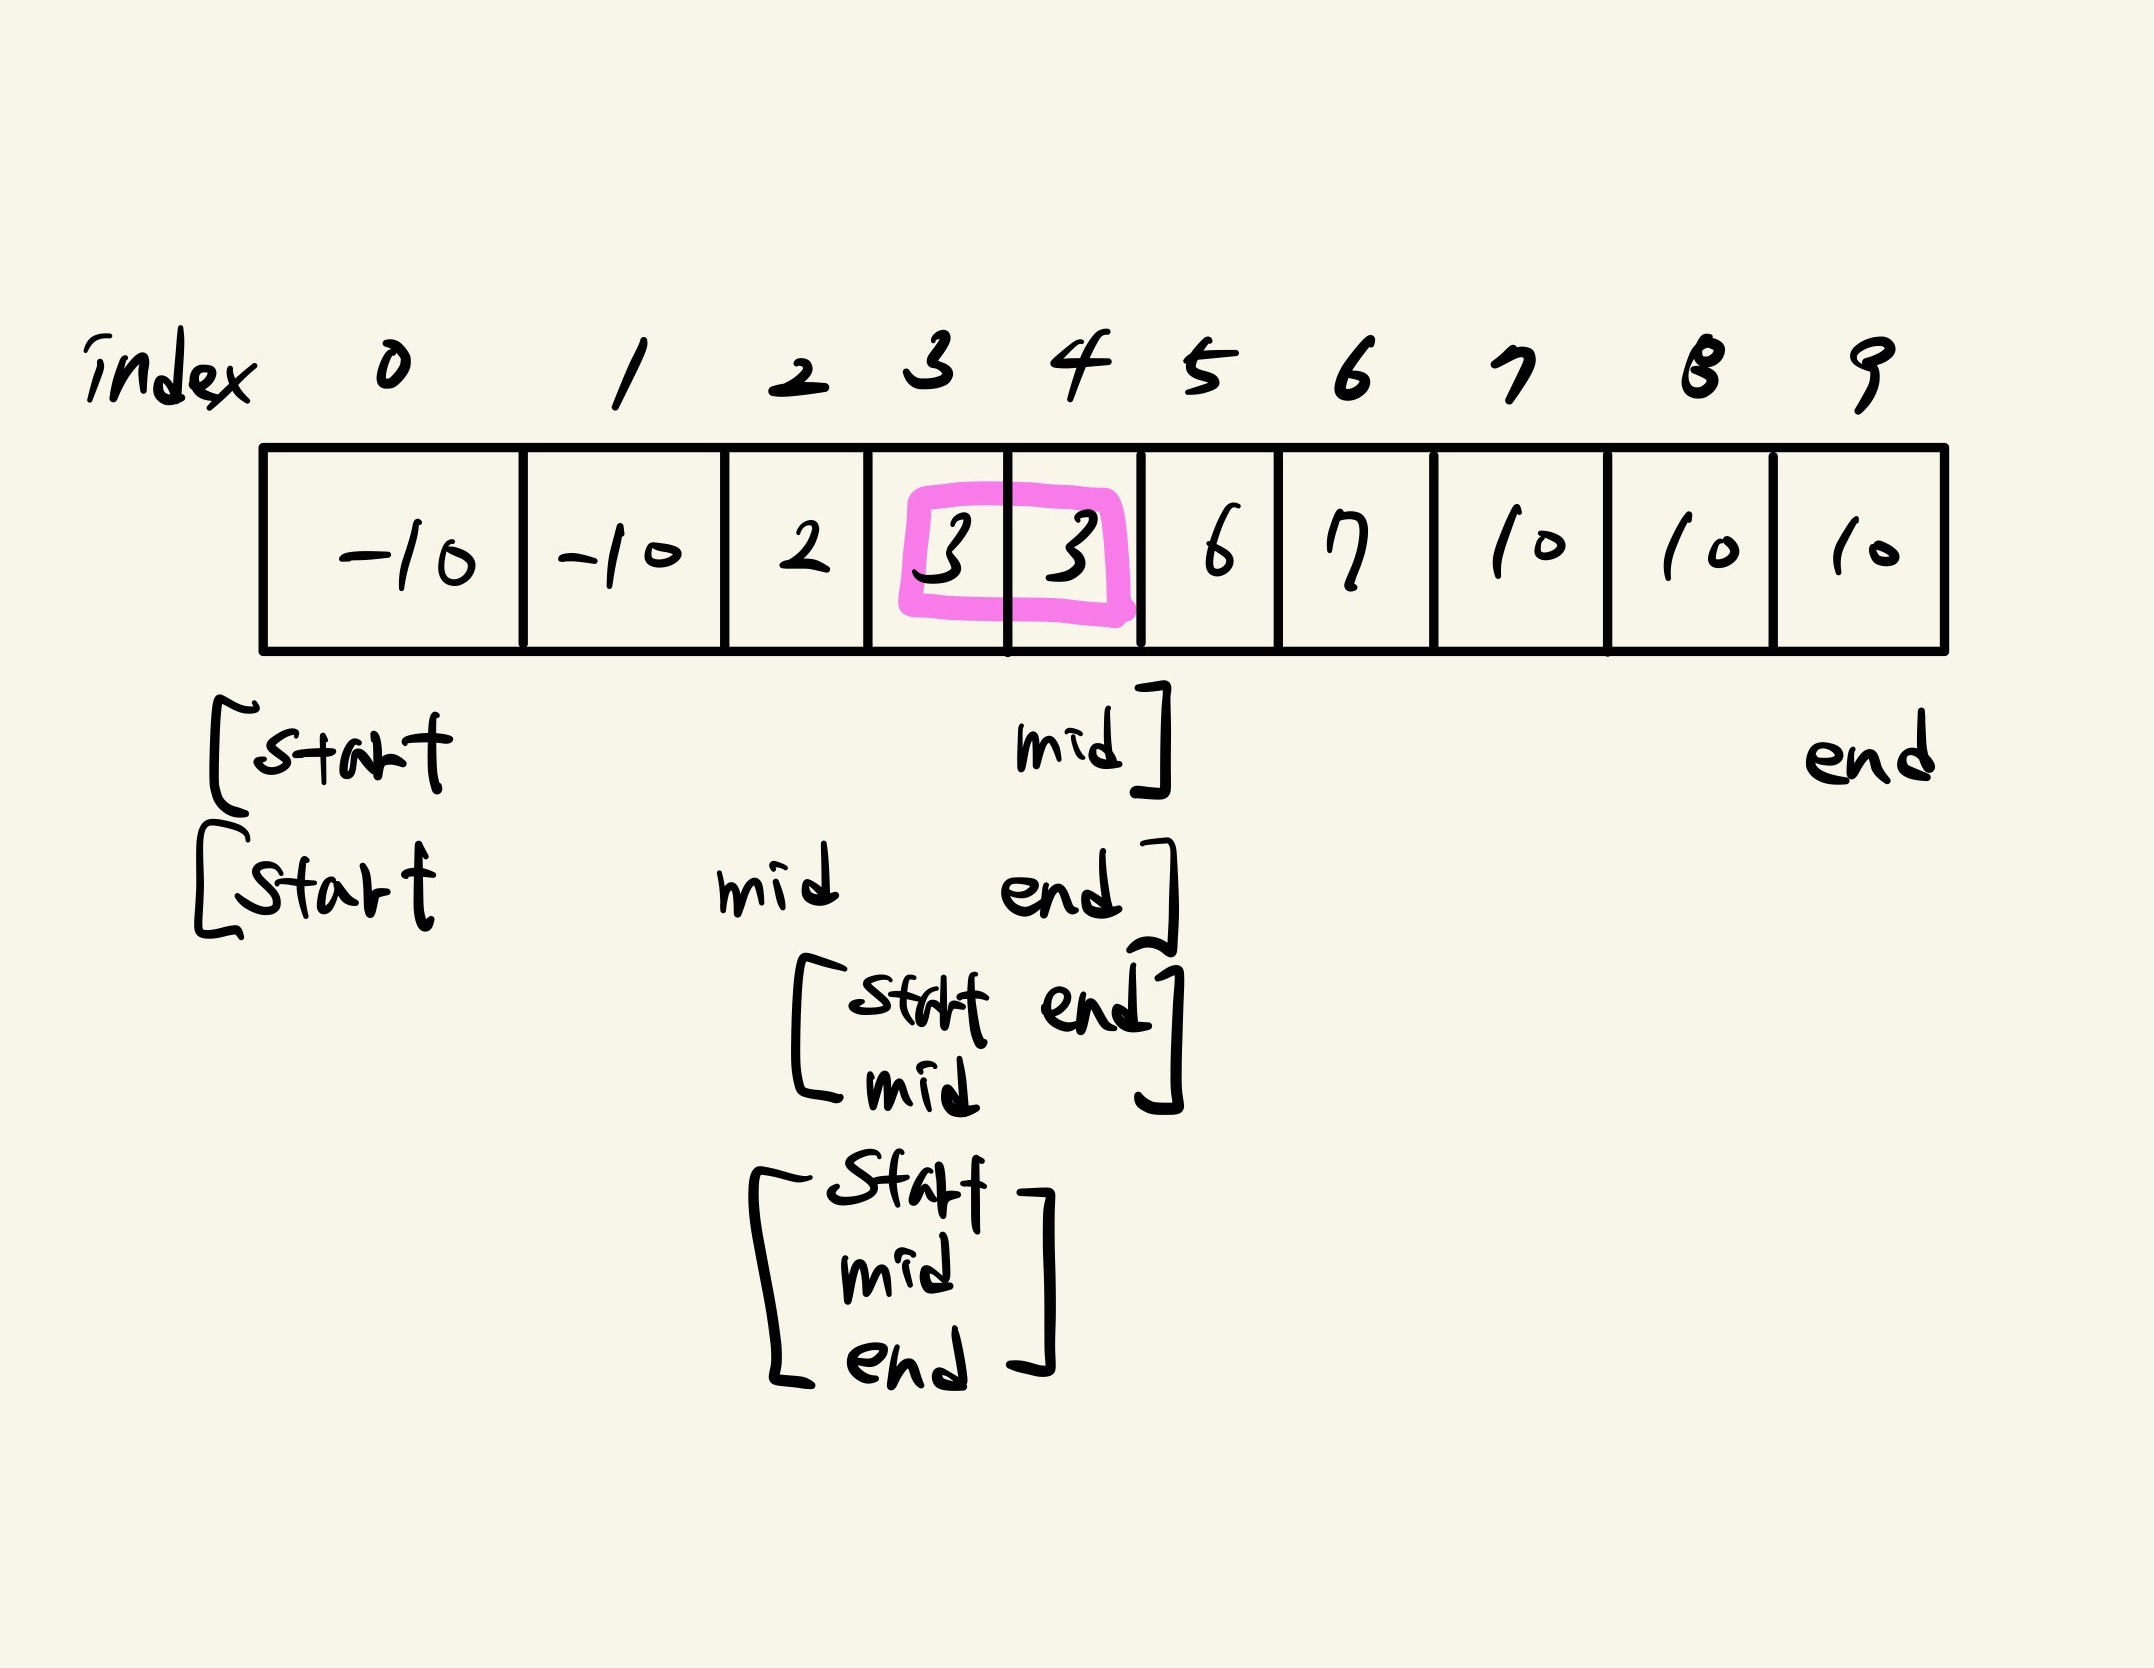 index 0 1 2 3 4 5 6 7 8 9
-10 -10 2 3 3 6 7 10 10 10
[start mid] end
[start mid end]
[start end]
mid
[start
mid
end]